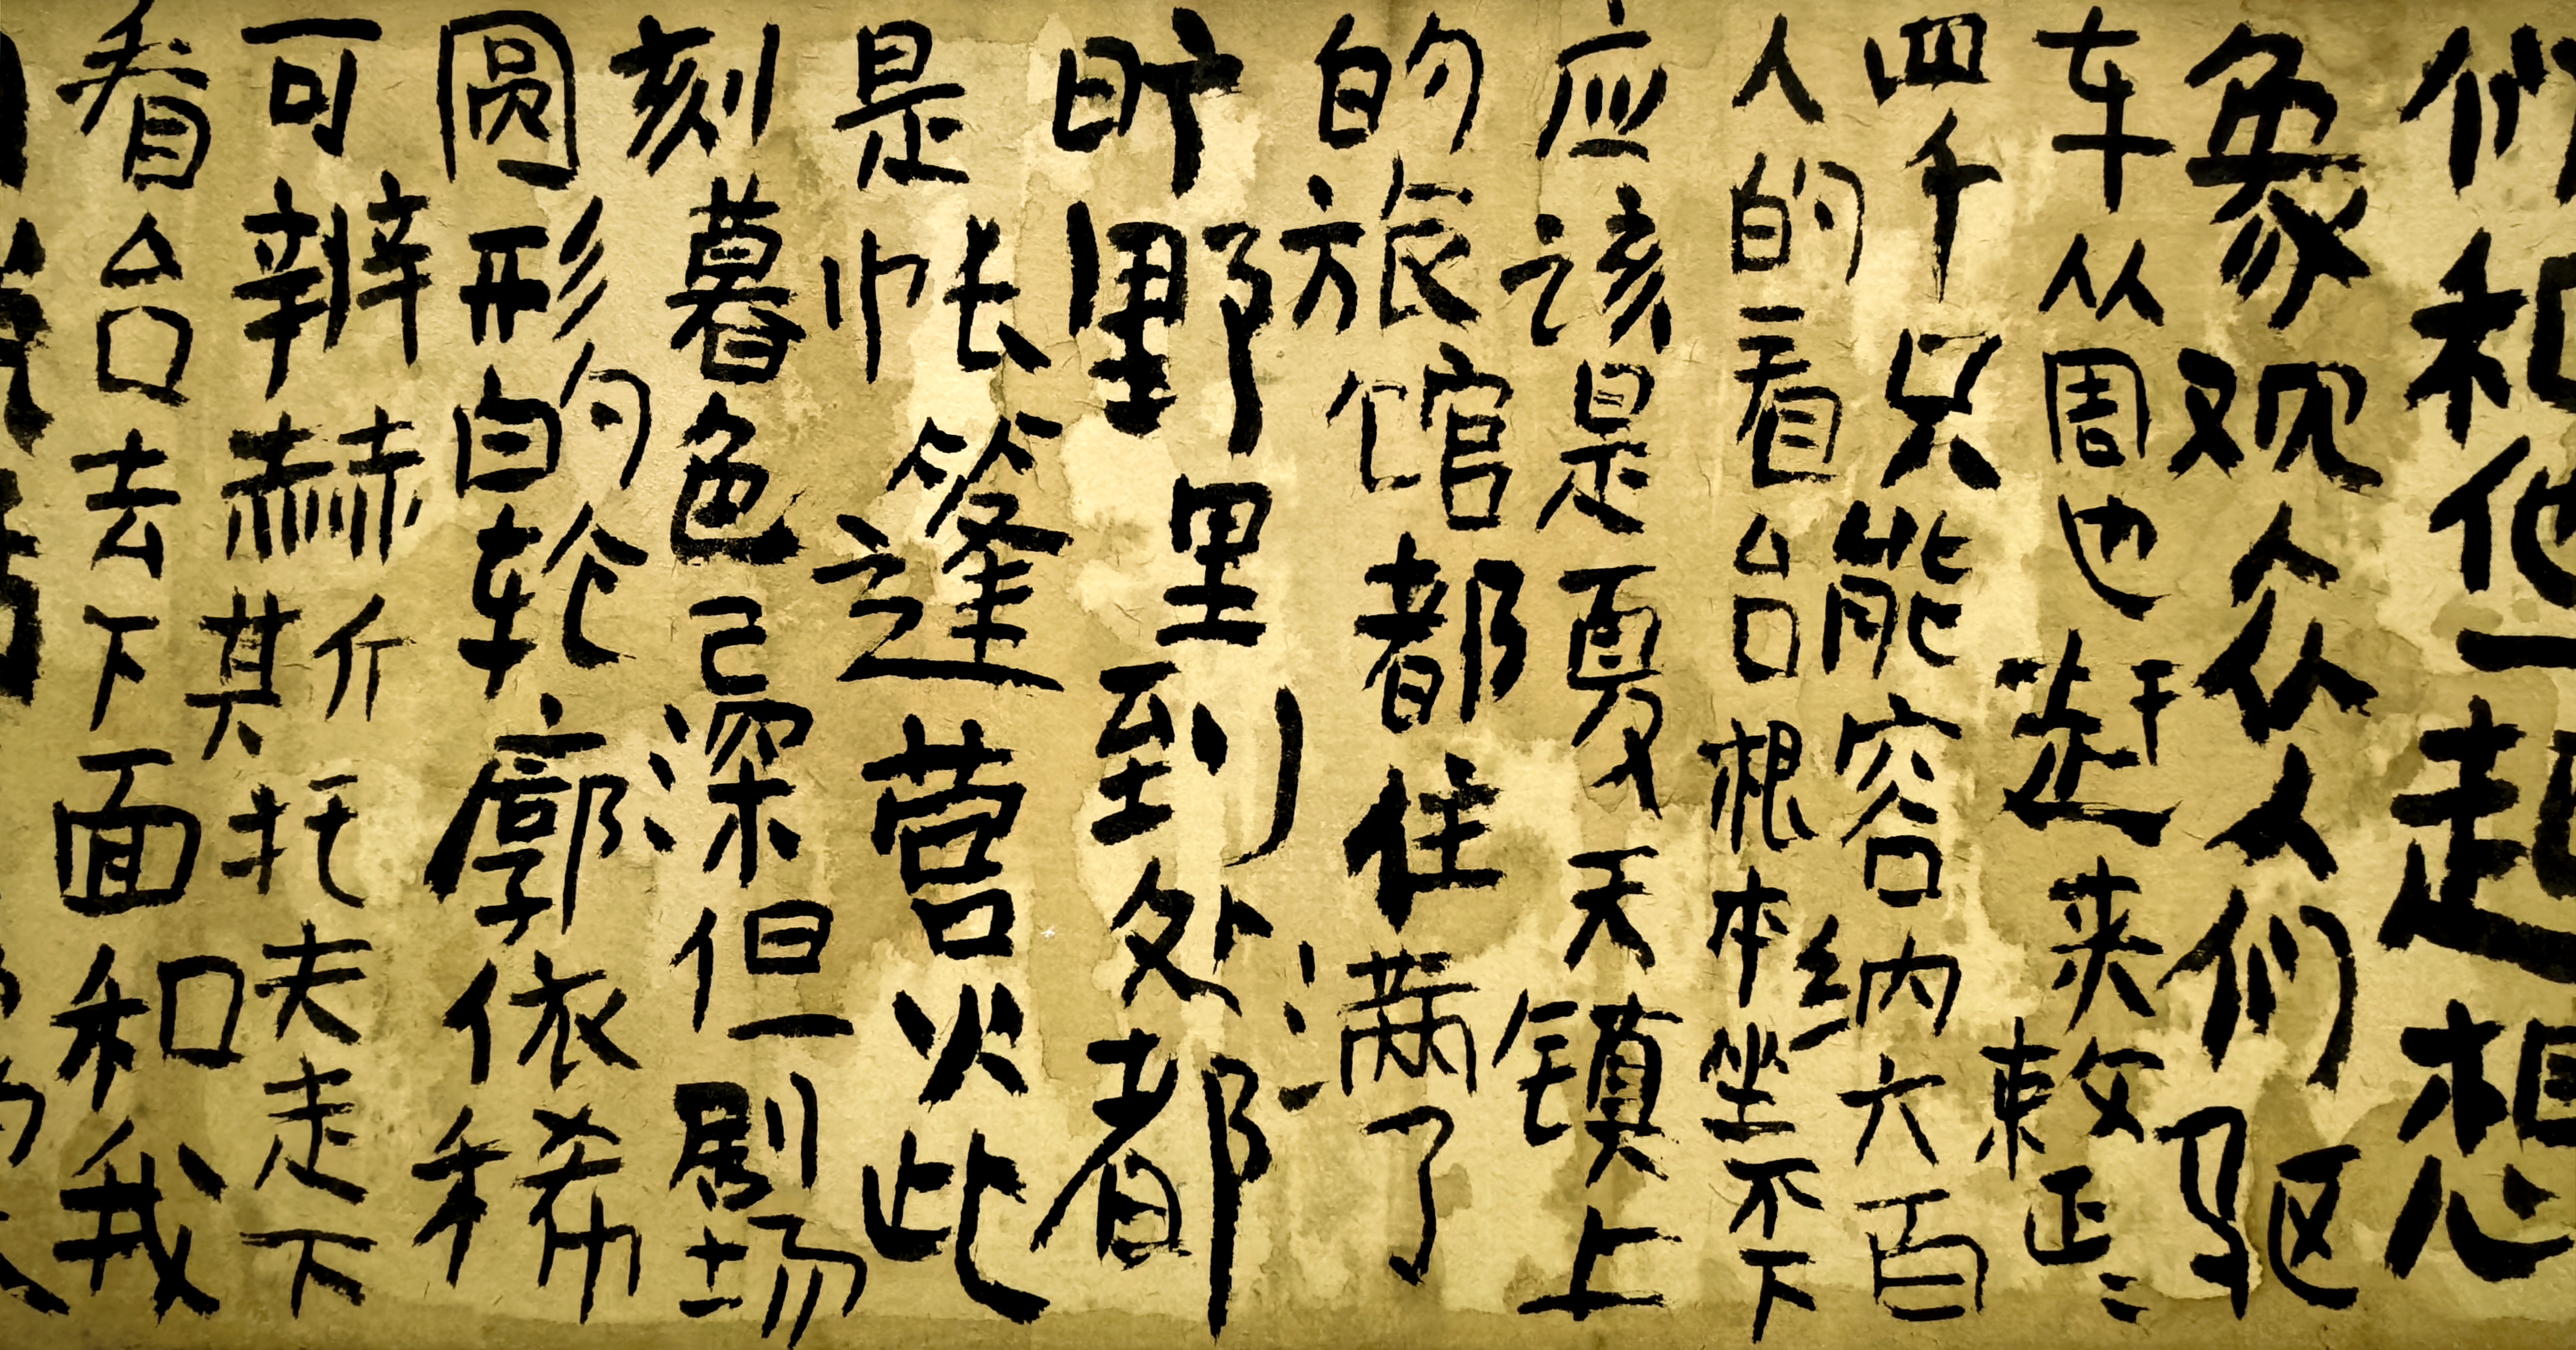 们和他一起想
象观众人们驱
车从周也赶来整〻
四千只能容纳六百
人的看台根本坐不下
应该是夏天镇上
的旅馆都住满了
旷野里到处都
是帐篷营火此
刻暮色已深但剧场
圆形的轮廓依稀
可辨赫斯托夫走下
看台去下面和我